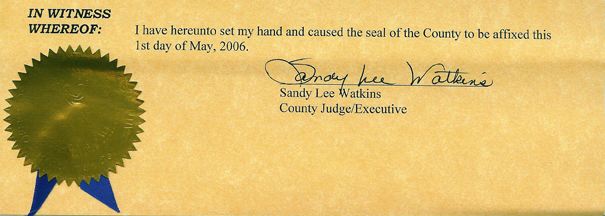 IN WITNESS
WHEREOF:
I have hereunto set my hand and caused the seal of the County to be affixed this
1st day of May, 2006.
Sandy Lee Watkins
Sandy Lee Watkins
County Judge/Executive